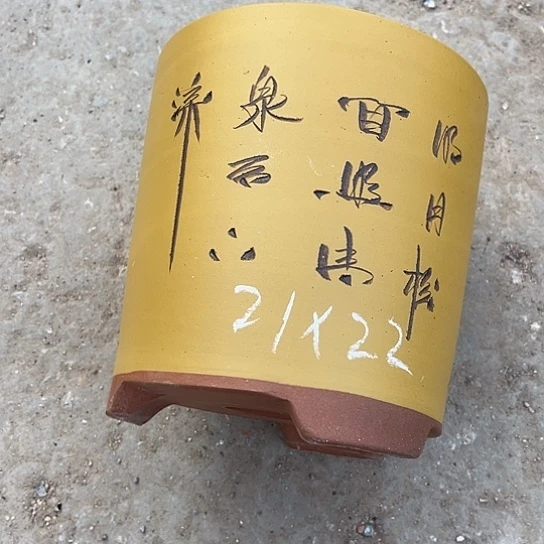 明月松
间照清
泉石上
流
21×22